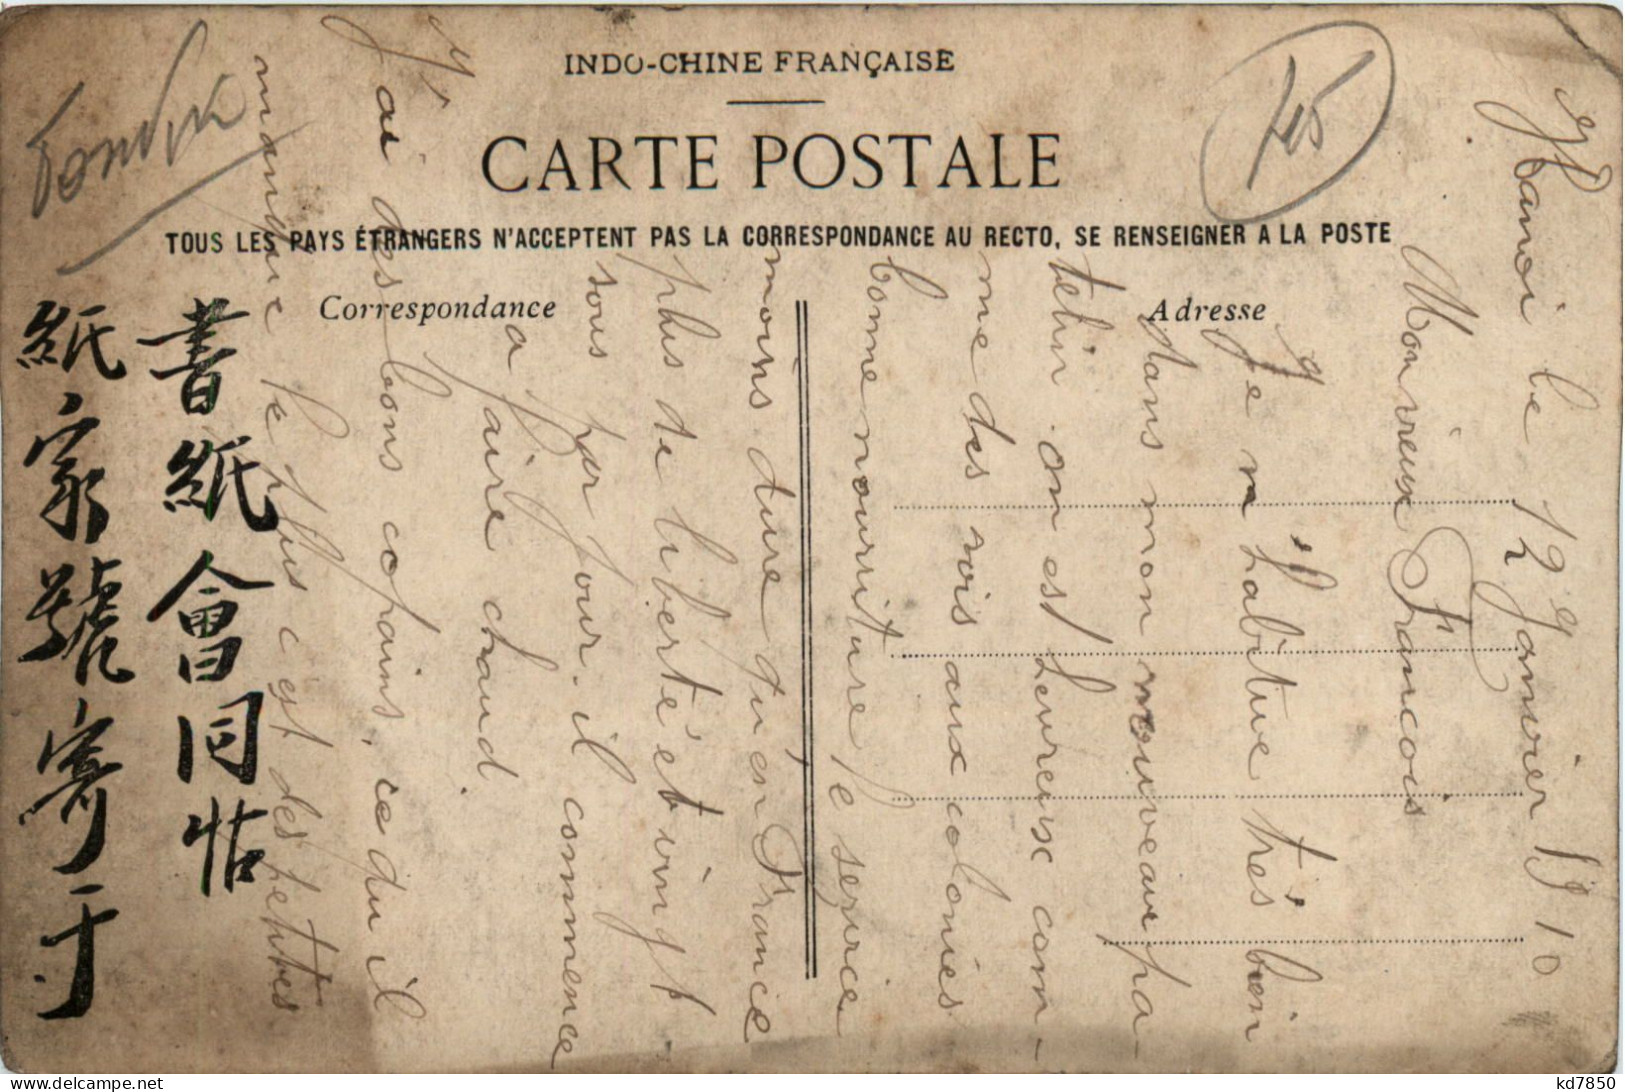 INDO-CHINE FRANÇAISE
CARTE POSTALE
TOUS LES PAYS ÉTRANGERS N'ACCEPTENT PAS LA CORRESPONDANCE AU RECTO, SE RENSEIGNER A LA POSTE
Correspondance
Adresse
Tonkin
Hanoi le 12 Janvier 1910
Mon vieux Francois
Je m'habitue très bien
dans mon nouveau pa-
telin. on est heureux com-
me des rois aux colonies
bonne nourriture le service
moins dure qu'en France
plus de liberté et vingt
sous par jour. il commence
a faire chaud.
J'ai des bons copains. ce du il
manque le plus c'est des petites
書紙會同帖
紙家號寄于
kd7850